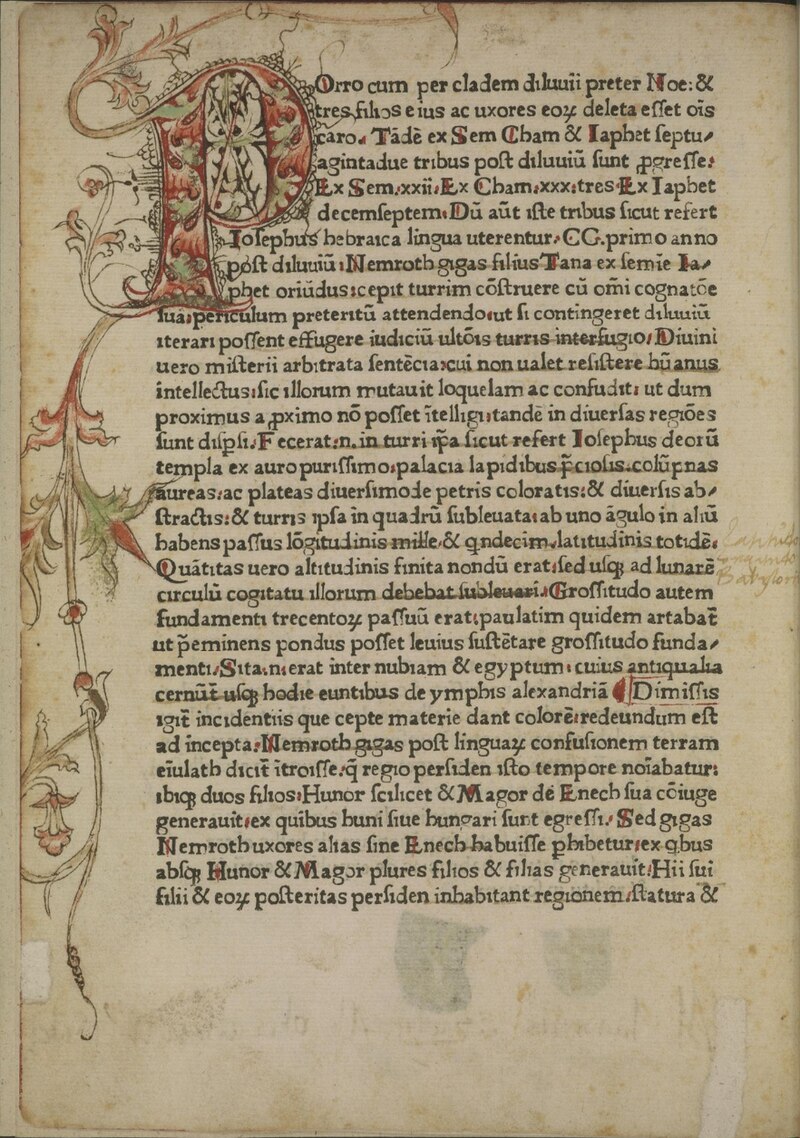 POrro cum per cladem diluuii preter Noe: &
tres filios eius ac uxores eoꝝ deleta esset oīs
caro. Tādē ex Sem Cham & Iaphet septu⸗
agintadue tribus post diluuiū sunt ꝓgresse:
Ex Sem.xxii. Ex Cham.xxx.tres. Ex Iaphet
decemseptem. Dū aūt iste tribus sicut refert
Iosephus hebraica lingua uterentur. CG. primo anno
post diluuiū: Nemroth gigas filius Tana ex semīe Ia⸗
phet oriūdus: cepit turrim cōstruere cū om̄i cognatōe
sua: periculum preteritū attendendo: ut si contingeret diluuiū
iterari possent effugere iudiciū ultōis turris interfugio. Diuini
uero misterii arbitrata sentēcia: cui non ualet resistere hūanus
intellectus: sic illorum mutauit loquelam ac confudit: ut dum
proximus a ꝓximo nō posset ītelligi: tandē in diuersas regiōes
sunt disp̄si. Fecerat.n. in turri ip̄a sicut refert Iosephus deorū
templa ex auro purissimo: palacia lapidibus p̄ciosis: colūpnas
aureas: ac plateas diuersimode petris coloratis: & diuersis ab⸗
stractis: & turris ipsa in quadrū subleuata: ab uno āgulo in aliū
habens passus lōgitudinis mille, & qndecim, latitudinis totidē.
Quātitas uero altitudinis finita nondū erat: sed usqꝫ ad lunarē
circulū cogitatu illorum debebat subleuari. Grossitudo autem
fundamenti trecentoꝝ passuū erat: paulatim quidem artabat̄
ut p̄eminens pondus posset leuius sustētare grossitudo funda⸗
menti. Sita.n. erat inter nubiam & egyptum: cuius antiqualia
cernūt̄ usqꝫ hodie euntibus de ymphis alexandriā ¶ Dimissis
igit̄ incidentiis que cepte materie dant colorē: redeundum est
ad incepta: Nemroth gigas post linguaꝝ confusionem terram
eiulath dicit̄ ītroisse: q̄ regio persiden isto tempore noīabatur:
ibiqꝫ duos filios: Hunor scilicet & Magor de Enech sua cōiuge
generauit: ex quibus huni siue hungari sunt egressi. Sed gigas
Nemroth uxores alias sine Enech habuisse ꝑhibetur: ex qbus
absqꝫ Hunor & Magor plures filios & filias generauit: Hii sui
filii & eoꝝ posteritas persiden inhabitant regionem, statura &